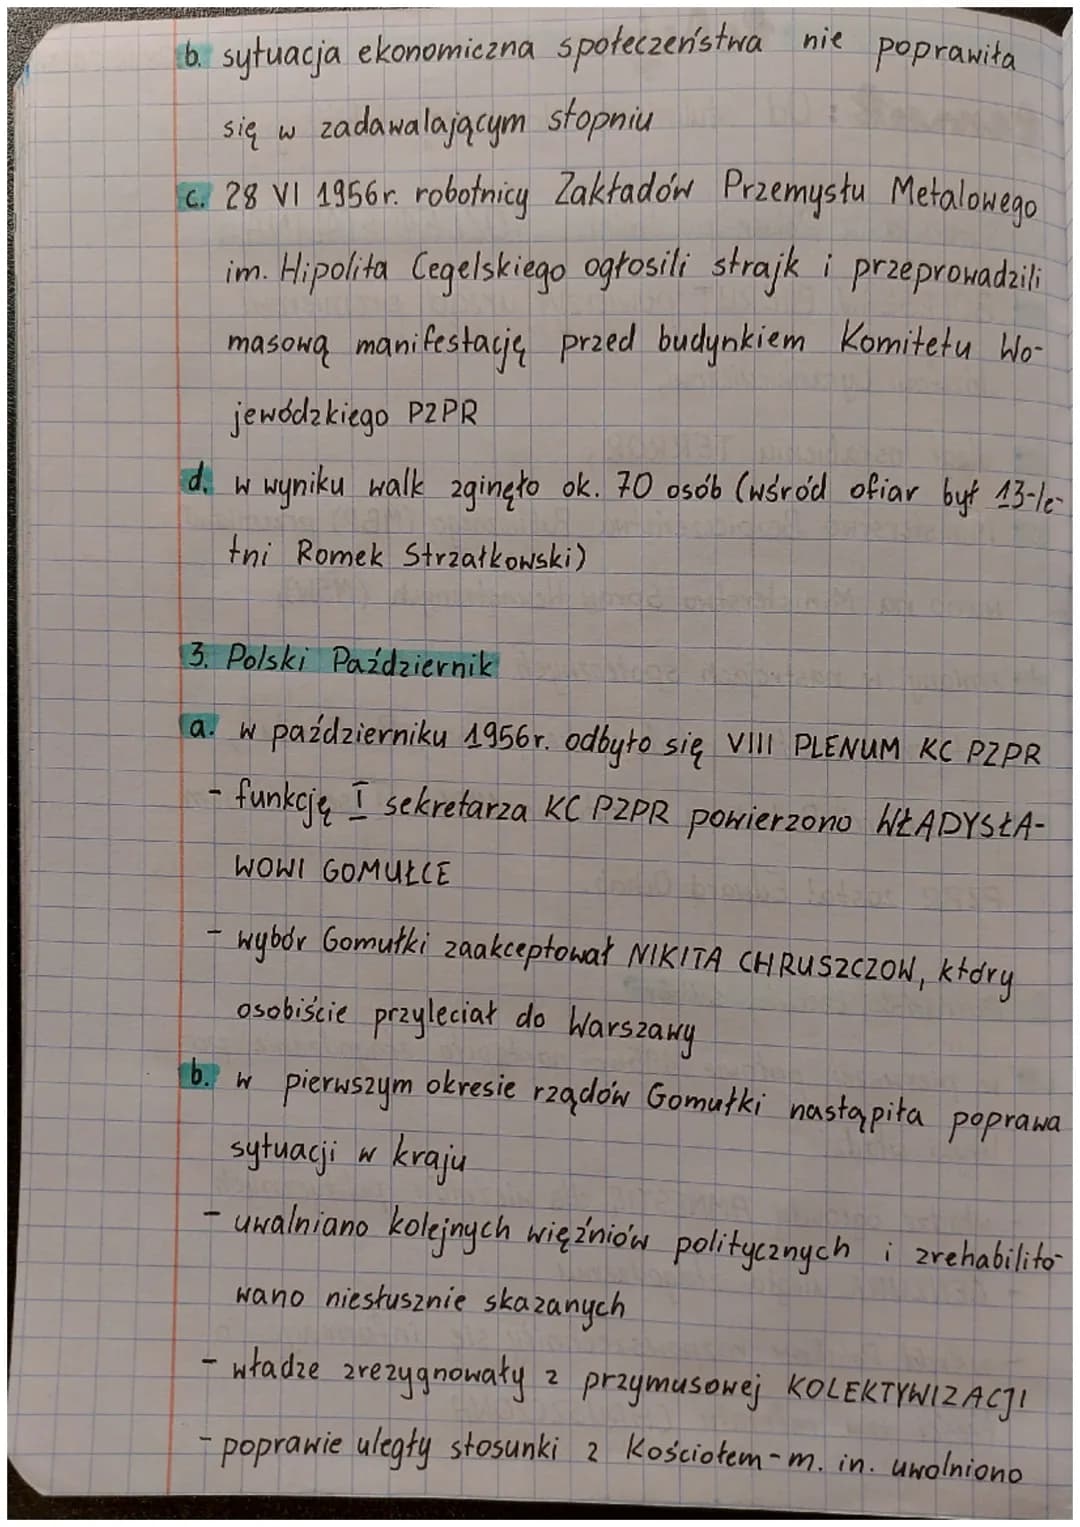 b. sytuacja ekonomiczna społeczeństwa nie poprawiła
się w zadawalającym stopniu
c. 28 VI 1956r. robotnicy Zakładów Przemysłu Metalowego
im. Hipolita Cegelskiego ogłosili strajk i przeprowadzili
masową manifestację przed budynkiem Komitetu Wo-
jewódzkiego PZPR
d. w wyniku walk zginęło ok. 70 osób (wśród ofiar był 13-le-
tni Romek Strzałkowski)
3. Polski Październik
a. w październiku 1956r. odbyło się VIII PLENUM KC PZPR
- funkcję I sekretarza KC PZPR powierzono WŁADYSŁA-
WOWI GOMUŁCE
- wybór Gomułki zaakceptował NIKITA CHRUSZCZOW, który
osobiście przyleciał do Warszawy
b. w pierwszym okresie rządów Gomułki nastąpiła poprawa
sytuacji w kraju
- uwalniano kolejnych więźniów politycznych i zrehabilito-
wano niesłusznie skazanych
- władze zrezygnowały z przymusowej KOLEKTYWIZACJI
- poprawie uległy stosunki z Kościołem - m. in. uwolniono